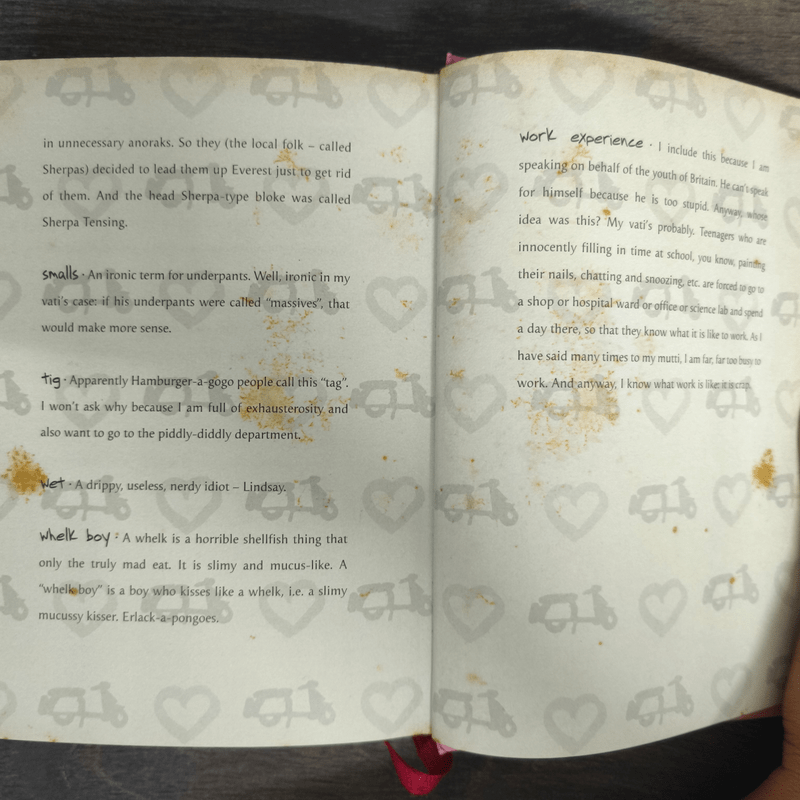 in unnecessary anoraks. So they (the local folk – called
Sherpas) decided to lead them up Everest just to get rid
of them. And the head Sherpa-type bloke was called
Sherpa Tensing.
smalls · An ironic term for underpants. Well, ironic in my
vati's case: if his underpants were called "massives", that
would make more sense.
tig · Apparently Hamburger-a-gogo people call this "tag".
I won't ask why because I am full of exhausterosity and
also want to go to the piddly-diddly department.
wet · A drippy, useless, nerdy idiot – Lindsay.
whelk boy · A whelk is a horrible shellfish thing that
only the truly mad eat. It is slimy and mucus-like. A
"whelk boy" is a boy who kisses like a whelk, i.e. a slimy
mucussy kisser. Erlack-a-pongoes.
work experience · I include this because I am
speaking on behalf of the youth of Britain. He can't speak
for himself because he is too stupid. Anyway, whose
idea was this? My vati's probably. Teenagers who are
innocently filling in time at school, you know, painting
their nails, chatting and snoozing, etc. are forced to go to
a shop or hospital ward or office or science lab and spend
a day there, so that they know what it is like to work. As I
have said many times to my mutti, I am far, far too busy to
work. And anyway, I know what work is like: it is crap.